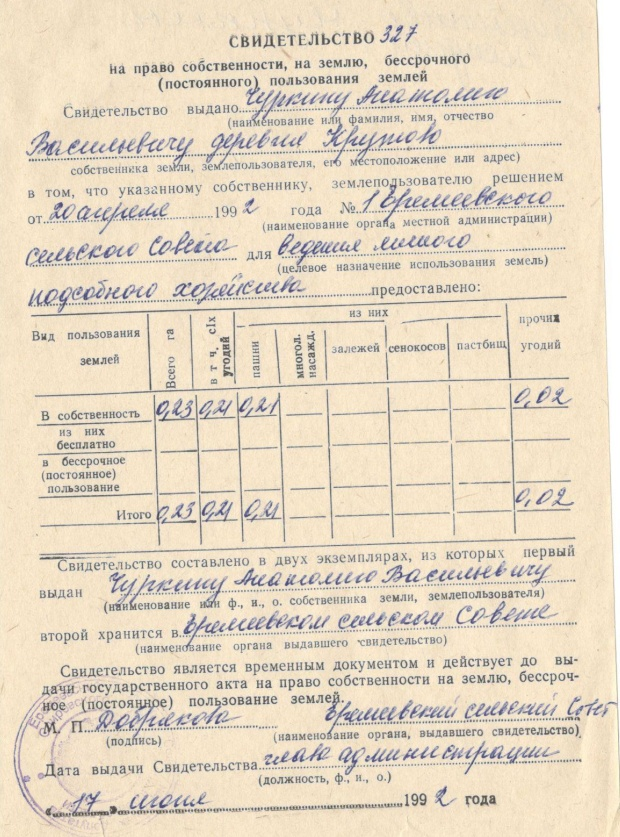 СВИДЕТЕЛЬСТВО 327
на право собственности, на землю, бессрочного
(постоянного) пользования землей
Свидетельство выдано Чуркину Анатолию
(наименование или фамилия, имя, отчество
Васильевичу деревня Крутово
собственника земли, землепользователя, его местоположение или адрес)
в том, что указанному собственнику, землепользователю решением
от 20 апреля 1992 года № 1 Еремеевского
(наименование органа местной администрации)
сельского Совета для ведения личного
(целевое назначение использования земель)
подсобного хозяйства предоставлено:
Вид пользования землей
Всего га
в т ч, с|х угодий
из них
пашни
многол. насажд.
залежей
сенокосов
пастбищ
прочих угодий
В собственность 0,23 0,21 0,21 — — — — 0,02
из них бесплатно
в бессрочное (постоянное) пользование
Итого 0,23 0,21 0,21 — — — — 0,02
Свидетельство составлено в двух экземплярах, из которых первый
выдан Чуркину Анатолию Васильевичу
(наименование или ф., и., о. собственника земли, землепользователя)
второй хранится в Еремеевском сельском Совете
(наименование органа выдавшего свидетельство)
Свидетельство является временным документом и действует до вы-
дачи государственного акта на право собственности на землю, бессроч-
ное (постоянное) пользование землей.
М. П. Добрякова Еремеевский сельский Совет
(подпись) (наименование органа, выдавшего свидетельство)
Дата выдачи Свидетельства глава администрации
(должность, ф., и., о.)
« 17 » июня 1992 года